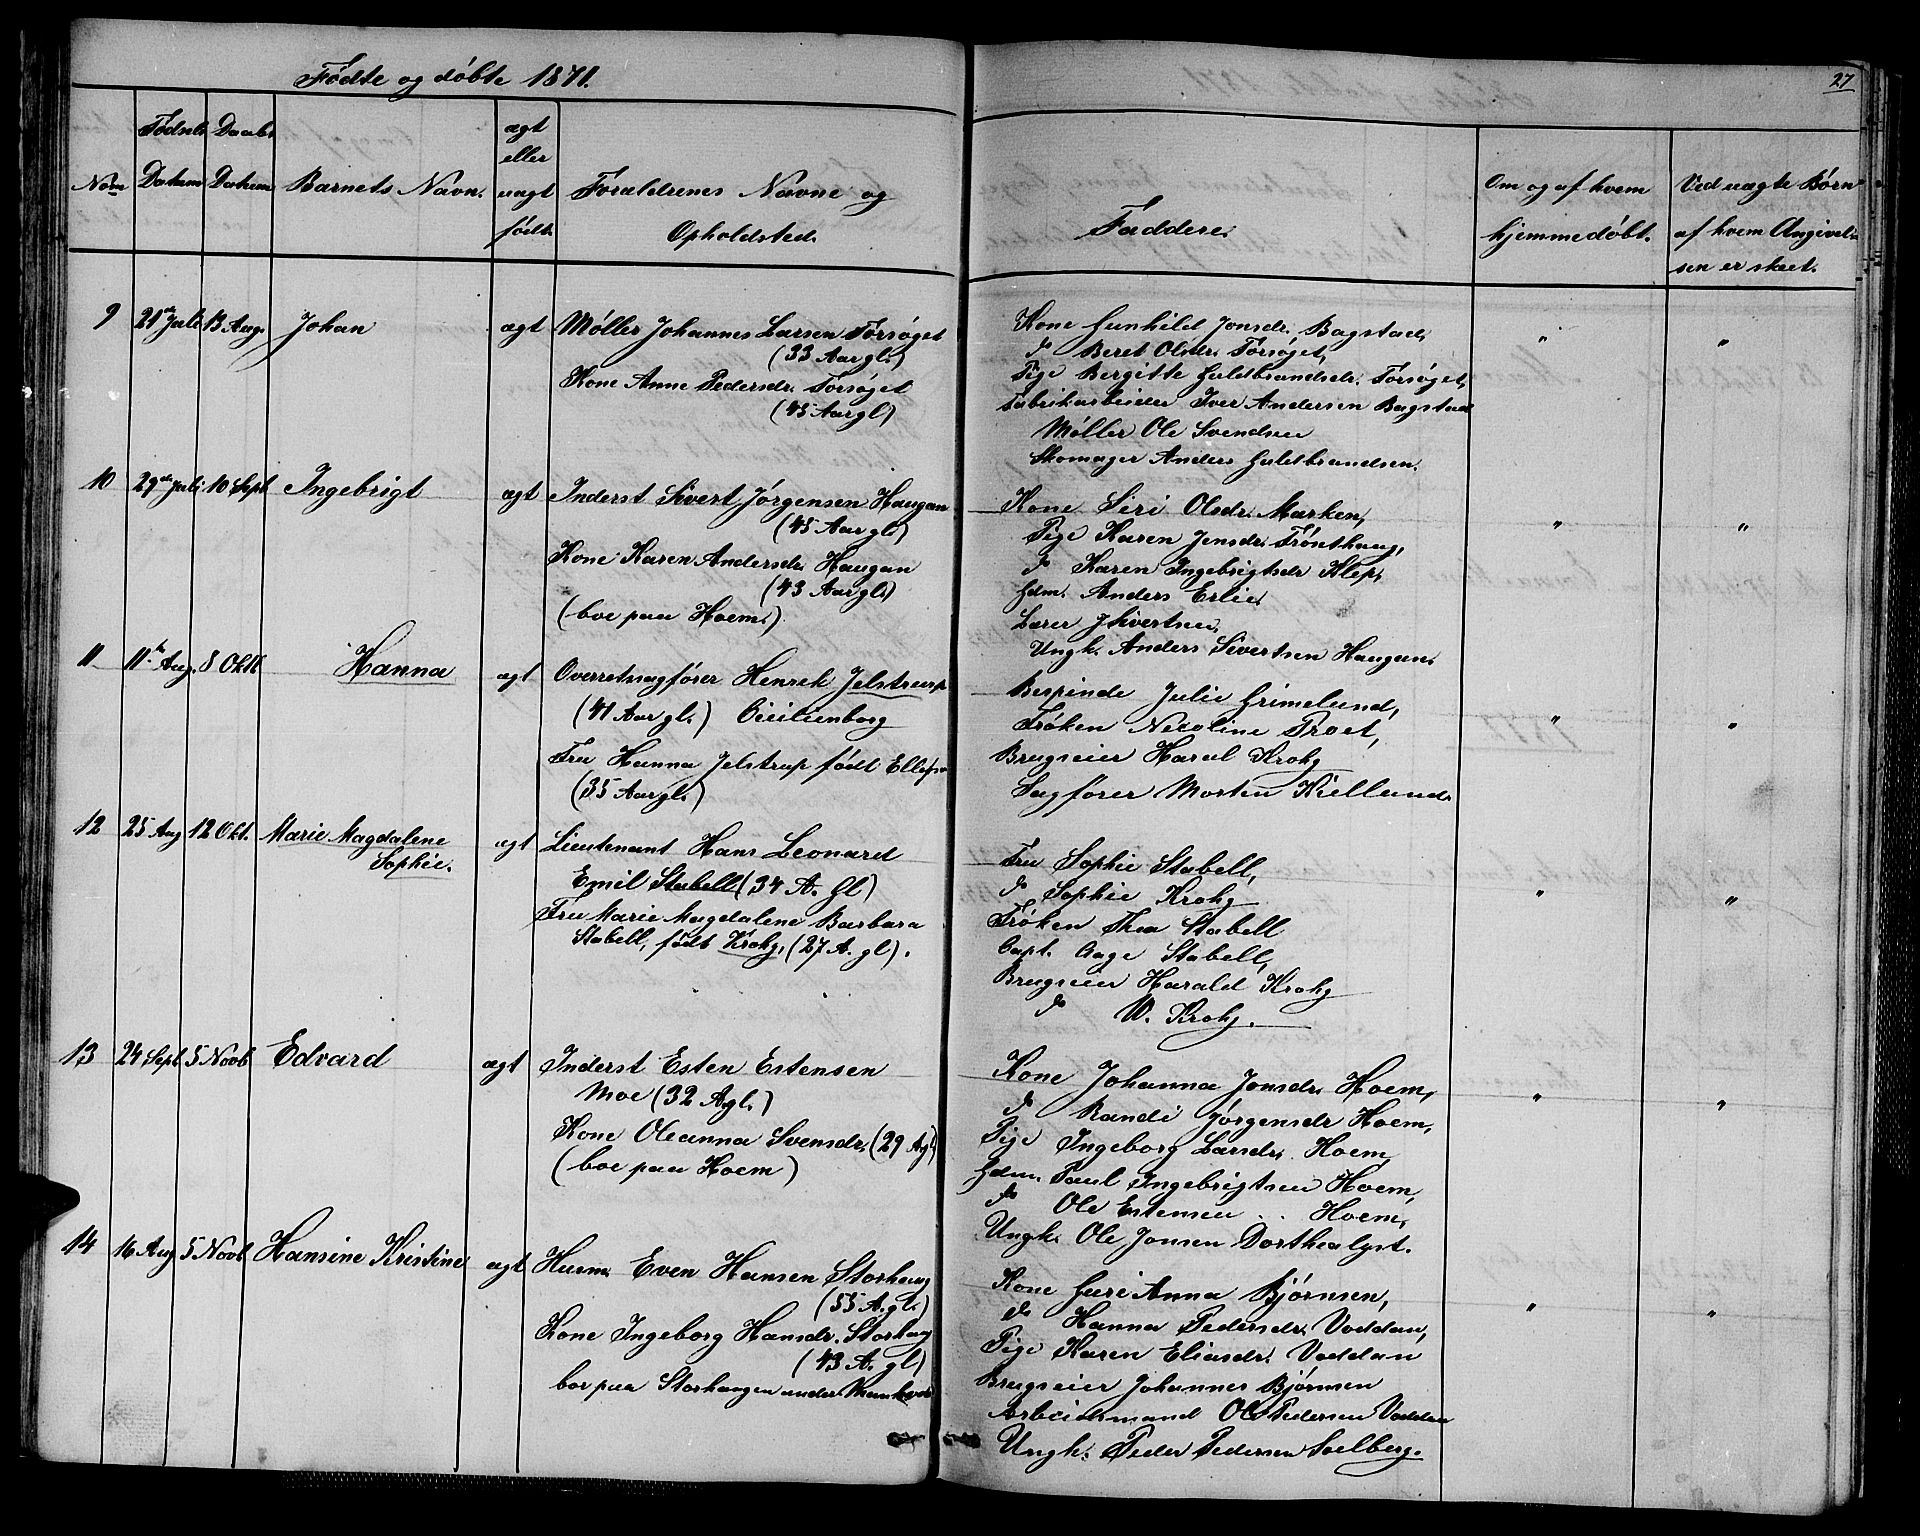 Fødte og døbte 1871.
27
Nom
Fødsels Datum
Daabs Datum
Barnets Navn.
ægt eller uægt født.
Forældrenes Navne og
Opholdsted.
Faddere.
Om og af hvem
hjemmedøbt.
Ved uægte Børn
af hvem Angivel-
sen er skeet.
9 21de Juli 13 Aug. Johan ægt Møller Johannes Larsen Forsøget
(33 Aar gl.)
Kone Anne Pedersdr. Forsøget
(45 Aar gl)
Kone Gunhild Jonsdr. Bagstad, " "
do Beret Olsdr. Forsøget,
Pige Bergitte Huldbrandsdr. Forsøget,
Fabrikarbeider Iver Andersen Bagstad
Møller Ole Svendsen
Skomager Anders Huldbrandsen.
10 29de Juli 10 Sept Ingebrigt ægt Inderst Sivert Jørgensen Haugan
(45 Aar gl.)
Kone Karen Andersdr. Haugan
(43 Aar gl.)
(boe paa Hoem.)
Kone Siri Olsdr. Marken, " "
Pige Karen Jensdr. Trønthaug,
do Karen Ingebrigtsdr Klep,
Gdm. Anders Erlie.
Lærer J Sivertsen,
Ungk. Anders Sivertsen Haugan.
11 11te Aug. 8 Oktb. Hanna ægt Overretsagfører Henrik Jelstrup
(41 Aar gl.) Cicilienborg
Fru Hanna Jelstrup født Ellefsen
(35 Aar gl.)
Bespinde Julie Grimelund, " "
Frøken Nicoline Troet,
Brugseier Haral Krohg
Sagfører Morten Kiellund.
12 25 Aug 12 Okt. Marie Magdalene
Sophie.
ægt Lieutenant Hans Leonard
Emil Stabell (34 A. gl)
Fru Marie Magdalene Barbara
Stabell, født Krohg, (27 A. gl).
Fru Sophie Stabell, " "
do Sophie Krohg
Frøken Thea Stabell
Capt. Aage Stabell,
Brugseier Harald Krohg
do W. Krohg.
13 24 Sept. 5 Novb Edvard ægt Inderst Esten Estensen
Moe (32 A gl.)
Kone Oleanna Svensdr. (29 A gl.)
(boe paa Hoem)
Kone Johanna Jonsdr. Hoem, " "
do Randi Jørgensdr Hoem,
Pige Ingeborg Larsdr. Hoem,
Gdm. Paul Ingebrigtsen Hoem,
do Ole Estensen .. Hoem,
Ungk. Ole Jonsen Dorthealyst.
14 16 Aug 5 Novb. Hansine Kristine ægt Husm. Even Hansen Storhaug
(55 A. gl.)
Kone Ingeborg Hansdr. Storhaug
(43 A. gl)
bor paa Storhaugen under
Kone Guri Anna Bjørnsen, " "
do Hanna Pedersdr. Voddan,
Pige Karen Eliasdr. Voddan
Brugseier Johannes Bjørnsen
Arbeidsmand Ole Pedersen Voddan
Ungk. Peder Pedersen Solberg.